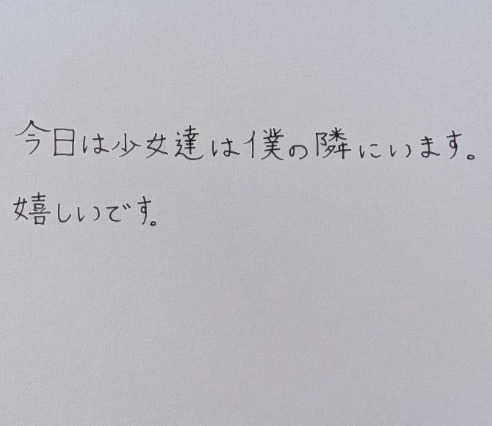 今日は少女達は僕の隣にいます。
嬉しいです。